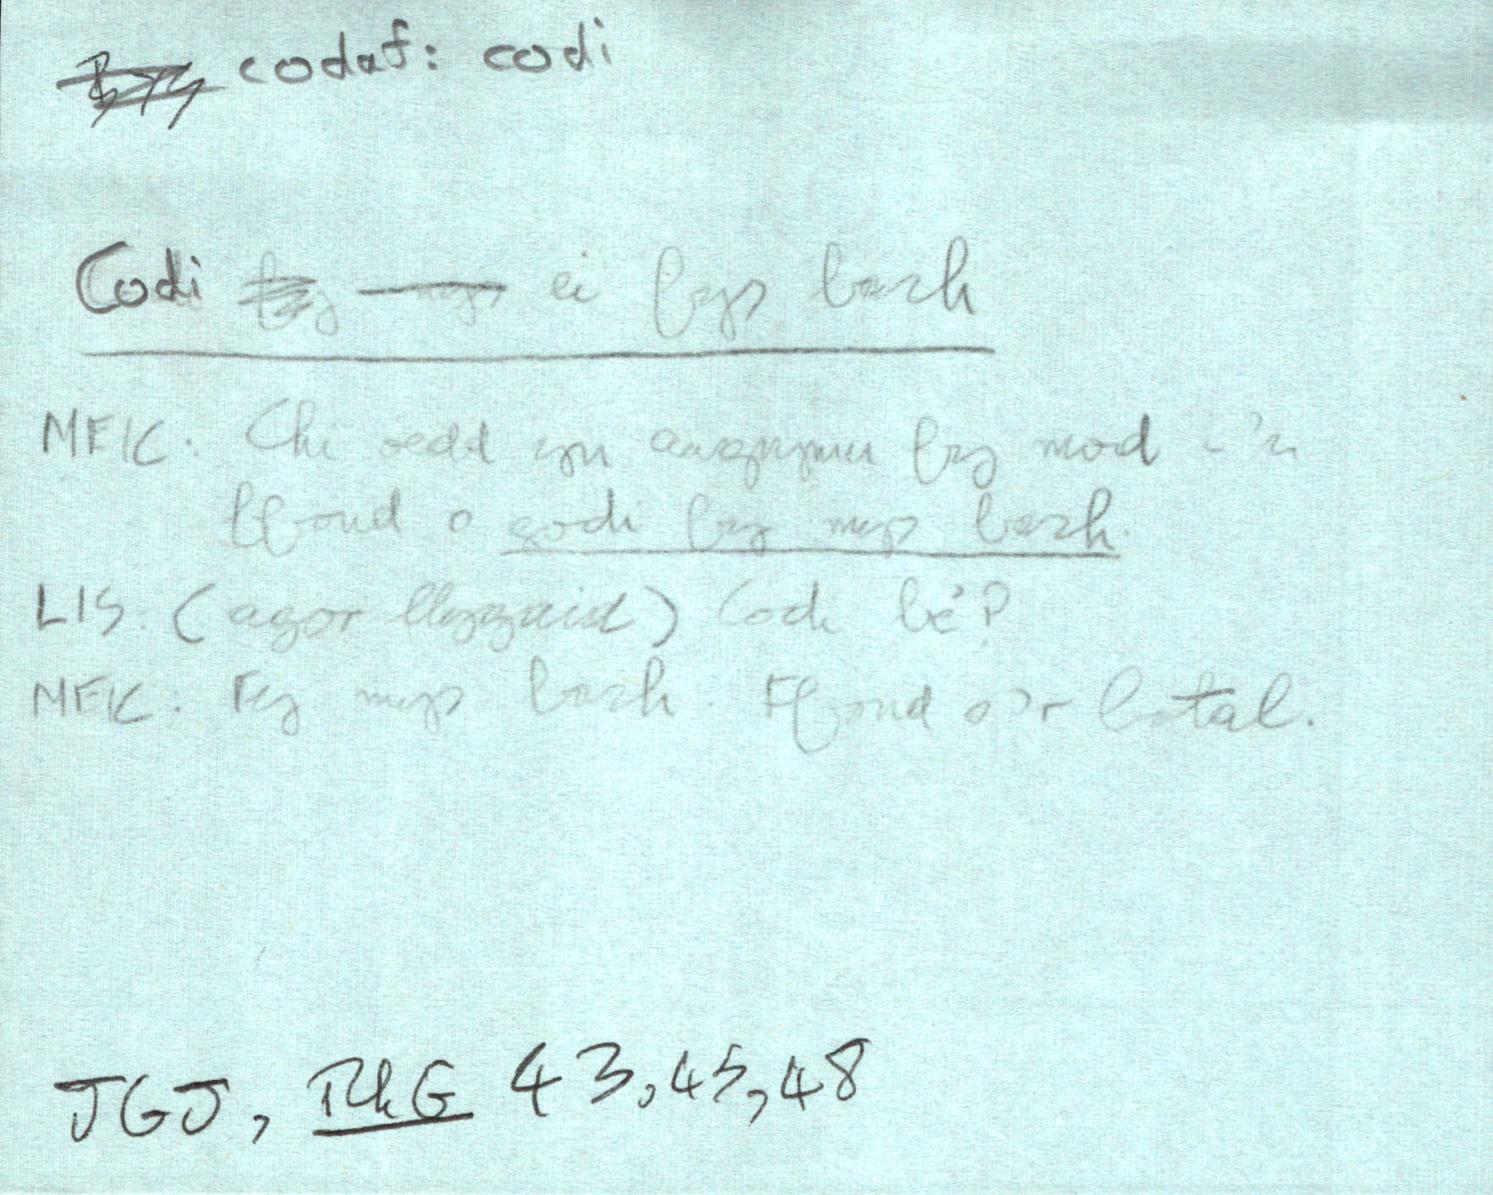 codaf: codi
Codi ei fys bach
MFK: Chi oedd yn awgrymu fy mod i'n
ffond o godi fy mys bach.
LIS: (agor llygaid) Codi be'?
MFK: Fy mys bach. Ffond o'r botal.
JGJ, RhG 43, 45, 48